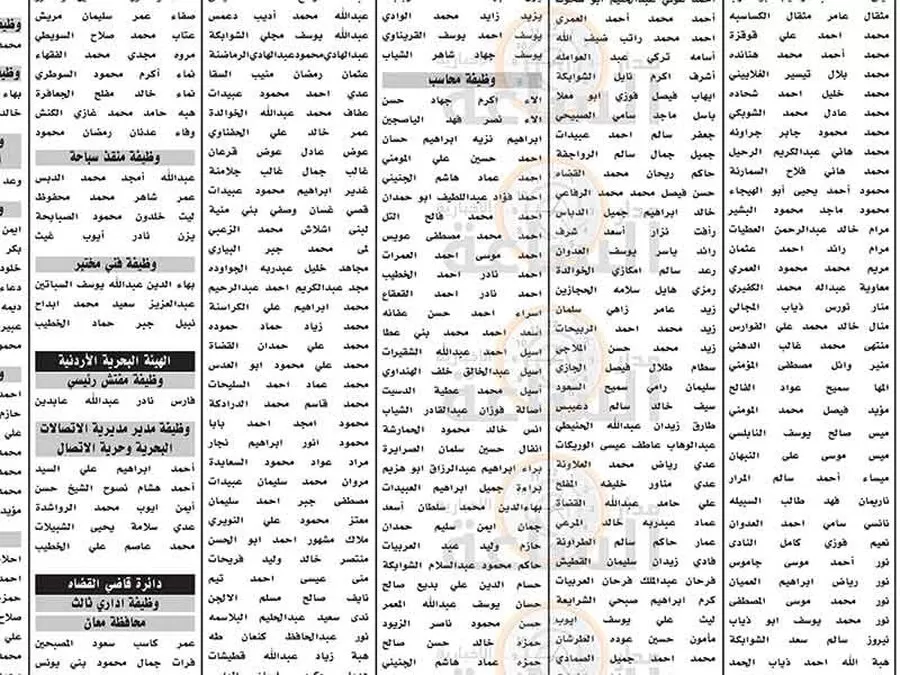 مثقال عامر مثقال الكساسبه
محمد احمد علي قوقزة
محمد أحمد محمد هنانده
محمد بلال تيسير الغلاييني
محمد خليل احمد شحاده
محمد عادل محمد الشوبكي
محمد محمود جابر جراونه
محمد هاني عبدالكريم الرحيل
محمد هاني فلاح السمارنة
محمود أحمد يحيى أبو الهيجاء
محمود ماجد محمود البشير
مرام خالد عبدالرحمن العطيات
مرام رائد احمد عثمان
مريم محمد محمود العمري
معاوية عبداله محمد الكفيري
منار نورس ذياب المجالي
منال خالد محمد علي الفوارس
منتهى محمد غالب الدهني
منير وائل مصطفى المومني
المها سميح عواد الفالح
مؤيد فيصل محمد المومني
ميس صالح يوسف النابلسي
ميس موسى علي النبهان
ميساء أحمد سالم المرار
ناريمان فهد طالب السبيله
نانسي سامي احمد العدوان
نعيم فوزي كامل النادي
نور أحمد موسى جاموس
نور رياض ابراهيم العميان
نور محمد موسى المصطفى
نور محمد يوسف ابو ذياب
نيروز سالم سعد الشوابكة
هبة الله احمد ذياب الحمد
أحمد محمد أحمد العمري
احمد محمد راتب ضيف الله
أسامه تركي عبد العوامله
أشرف اكرم نايل الشوابكة
ايهاب فيصل فوزي ابو معلا
باسل ماجد سامي الصبيحي
جعفر سالم احمد عبيدات
جميل جمال سالم الرواجفة
حاكم ريحان محمد القضاه
حسن فيصل محمد محمد الرفاعي
خالد ابراهيم جميل الدباس
رأفت نزار أسعد شرف
رائد ياسر يوسف العدوان
رعد سالم امكازي الخوالدة
رمزي هايل سلامه الحجازين
زيد عامر زاهي سلمان
زيد محمد احمد الربيحات
زيد محمد حسن الملاجي
سطام طلال فيصل الجازي
سليمان رامي سميح السعود
سيف خالد سالم دعيبس
طارق زيدان عبدالله الحنيطي
عبدالوهاب عاطف عيسى الوريكات
عدي رياض محمد العلاونة
عدي مناور خليفه المفلح
علي حامد عبدالله القضاة
عماد عبدربه خالد المرعي
عمار حاكم سالم الطراونة
فادي زيدان سليمان القطيش
فرحان عبدالملك فرحان العربيات
كرم ابراهيم صبحي الشرايعة
ليث علي يوسف ايوب
مأمون حسين عوده الطرشان
محمد احمد جميل الصمادي
يزيد زايد محمد الوادي
يوسف احمد يوسف القريناوي
يوسف جهاد شاهر الشياب
وظيفة محاسب
الاء اكرم جهاد حسن
الاء نصر فهد الياصجين
ابراهيم نزيه ابراهيم حسان
احمد حسين علي المومني
احمد عماد هاشم الجنيني
احمد فؤاد عبداللطيف ابو حمدان
احمد محمد فالح التل
احمد محمد مصطفى عويس
احمد موسى احمد العمرات
احمد نادر احمد الخطيب
احمد نادر احمد القعقاع
اسراء احمد حسن عفانه
أسعد أحمد محمد بني عطا
اسيل احمد عبدالله الشقيرات
اسيل عبدالخالق خلف الهنداوي
أسيل محمد عطية الدسيت
أصالة فوزان عبدالقادر الشياب
انس خالد محمود الحمارشة
انفال حسين سلمان الصرايرة
براء ابراهيم عبدالرزاق ابو هزيم
براءة جميل ابراهيم العبيدات
بهاءالدين محمد سلطان أسعد
جمان ايمن سليم حمدان
حازم وليد عيد العربيات
حاكم محمود عبدالسلام الشوابكة
حسام الدين علي بديع صالح
حسان يوسف عبدالله المعمر
حسن محمود ناصر الزيود
حمزة خالد حسن صالح
حمزه عماد هاشم الجنيني
عبدالله محمد أديب دعمس
عبدالله يوسف مجلي الشوابكة
عبدالهادي محمود عبدالهادي الرماضنة
عثمان رمضان منيب السقا
عدي احمد محمود عبيدات
عفاف محمد عبدالله الخوالدة
عمر خالد علي الحفناوي
عوض عادل عوض قرعان
غالب جمال غالب جلامنة
غدير ابراهيم محمود عبيدات
قصي غسان وصفي بني منية
لبنى اشلاش محمد الزعبي
لمى محمد جبر البياري
مجاهد خليل عبدربه الجواوده
مجد عبدالكريم احمد عبدالرحيم
محمد ابراهيم علي الكراسنة
محمد زياد حماد حموده
محمد علي حمدان القضاة
محمد علي محمود ابو العدس
محمد عماد احمد السليحات
محمد قاسم محمد الدرادكة
محمود امجد احمد بابا
محمود انور ابراهيم نجار
مراد عواد محمود السعايدة
مروان محمد سليمان عبيدات
مصطفى جبر احمد سليمان
معتز محمود علي النويري
ملاك مشهور احمد ابو الحسن
منتصر خالد وليد فريحات
منى عيسى احمد تيم
نايف صالح مسلم الالجن
ندى سعيد عبدالحليم البلاسمه
نور عبدالحافظ كنعان طه
هبة زياد عبدالله قطيشات
صفاء عمر سليمان مريش
عتاب محمد صلاح السويطي
مروه مجدي محمد الفقهاء
نماء أكرم محمود السوطري
نماء خالد مفلح الجعافرة
هبه حامد محمد غازي الكنش
وفاء عدنان رمضان محمود
وظيفة منقذ سباحة
عبدالله أمجد محمد الدبس
عمر شاهر محمد محفوظ
ليث خلدون محمود الصبابحة
يزن نادر أيوب غيث
وظيفة فني مختبر
بهاء الدين عبدالله يوسف السباتين
عبدالعزيز سعيد محمد ابداح
نبيل جبر حماد الخطيب
الهيئة البحرية الأردنية
وظيفة مفتش رئيسي
فارس نادر عبدالله عابدين
وظيفة مدير مديرية الاتصالات
البحرية وحرية الاتصال
أحمد ابراهيم علي السيد
أحمد هشام نصوح الشيخ حسن
أيمن ايوب محمد الرواشدة
عدي سلامة يحيى الشبيلات
محمد عاصم علي الخطيب
دائرة قاضي القضاه
وظيفة اداري ثالث
محافظة معان
عمر كاسب سعود المصبحين
فرات جمال محمود بني يونس